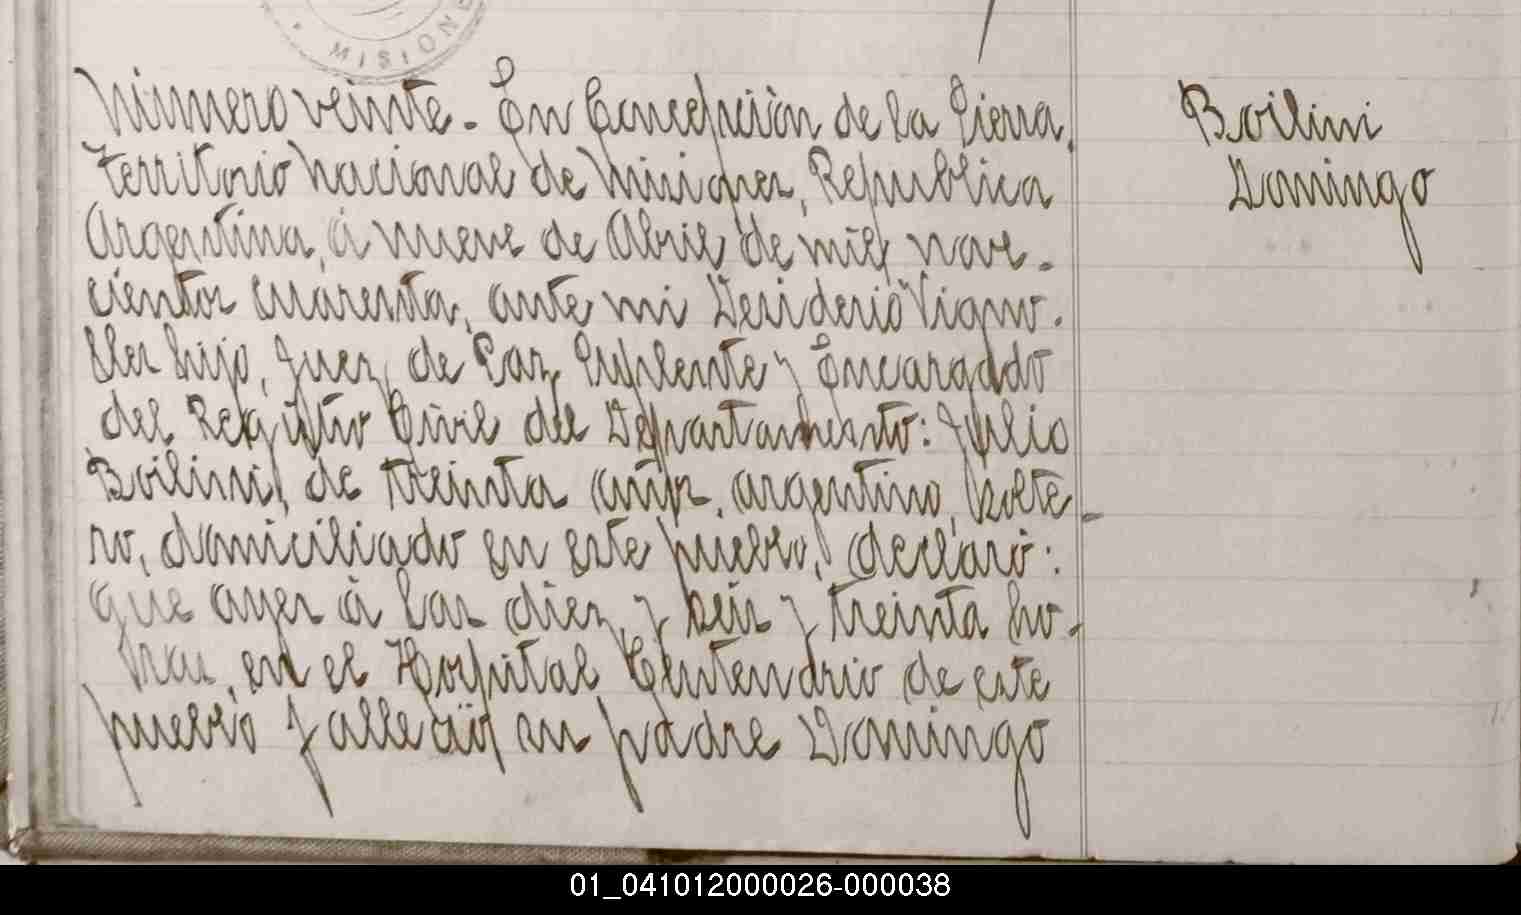 MISIONE
Número veinte. En Concepción de la Sierra,
Territorio Nacional de Misiones, Republica
Argentina, á nueve de Abril de mil nove-
cientos cuarenta, ante mi Desiderio Vigno-
lles hijo, Juez de Paz Suplente y Encargado
del Registro Civil del Departamento: Julio
Boilini, de treinta años, argentino, solte-
ro, domiciliado en este pueblo, declaró:
que ayer á las diez y seis y treinta ho-
ras, en el Hospital Centenario de este
pueblo falleció su padre Domingo
Boilini
Domingo
01_041012000026-000038